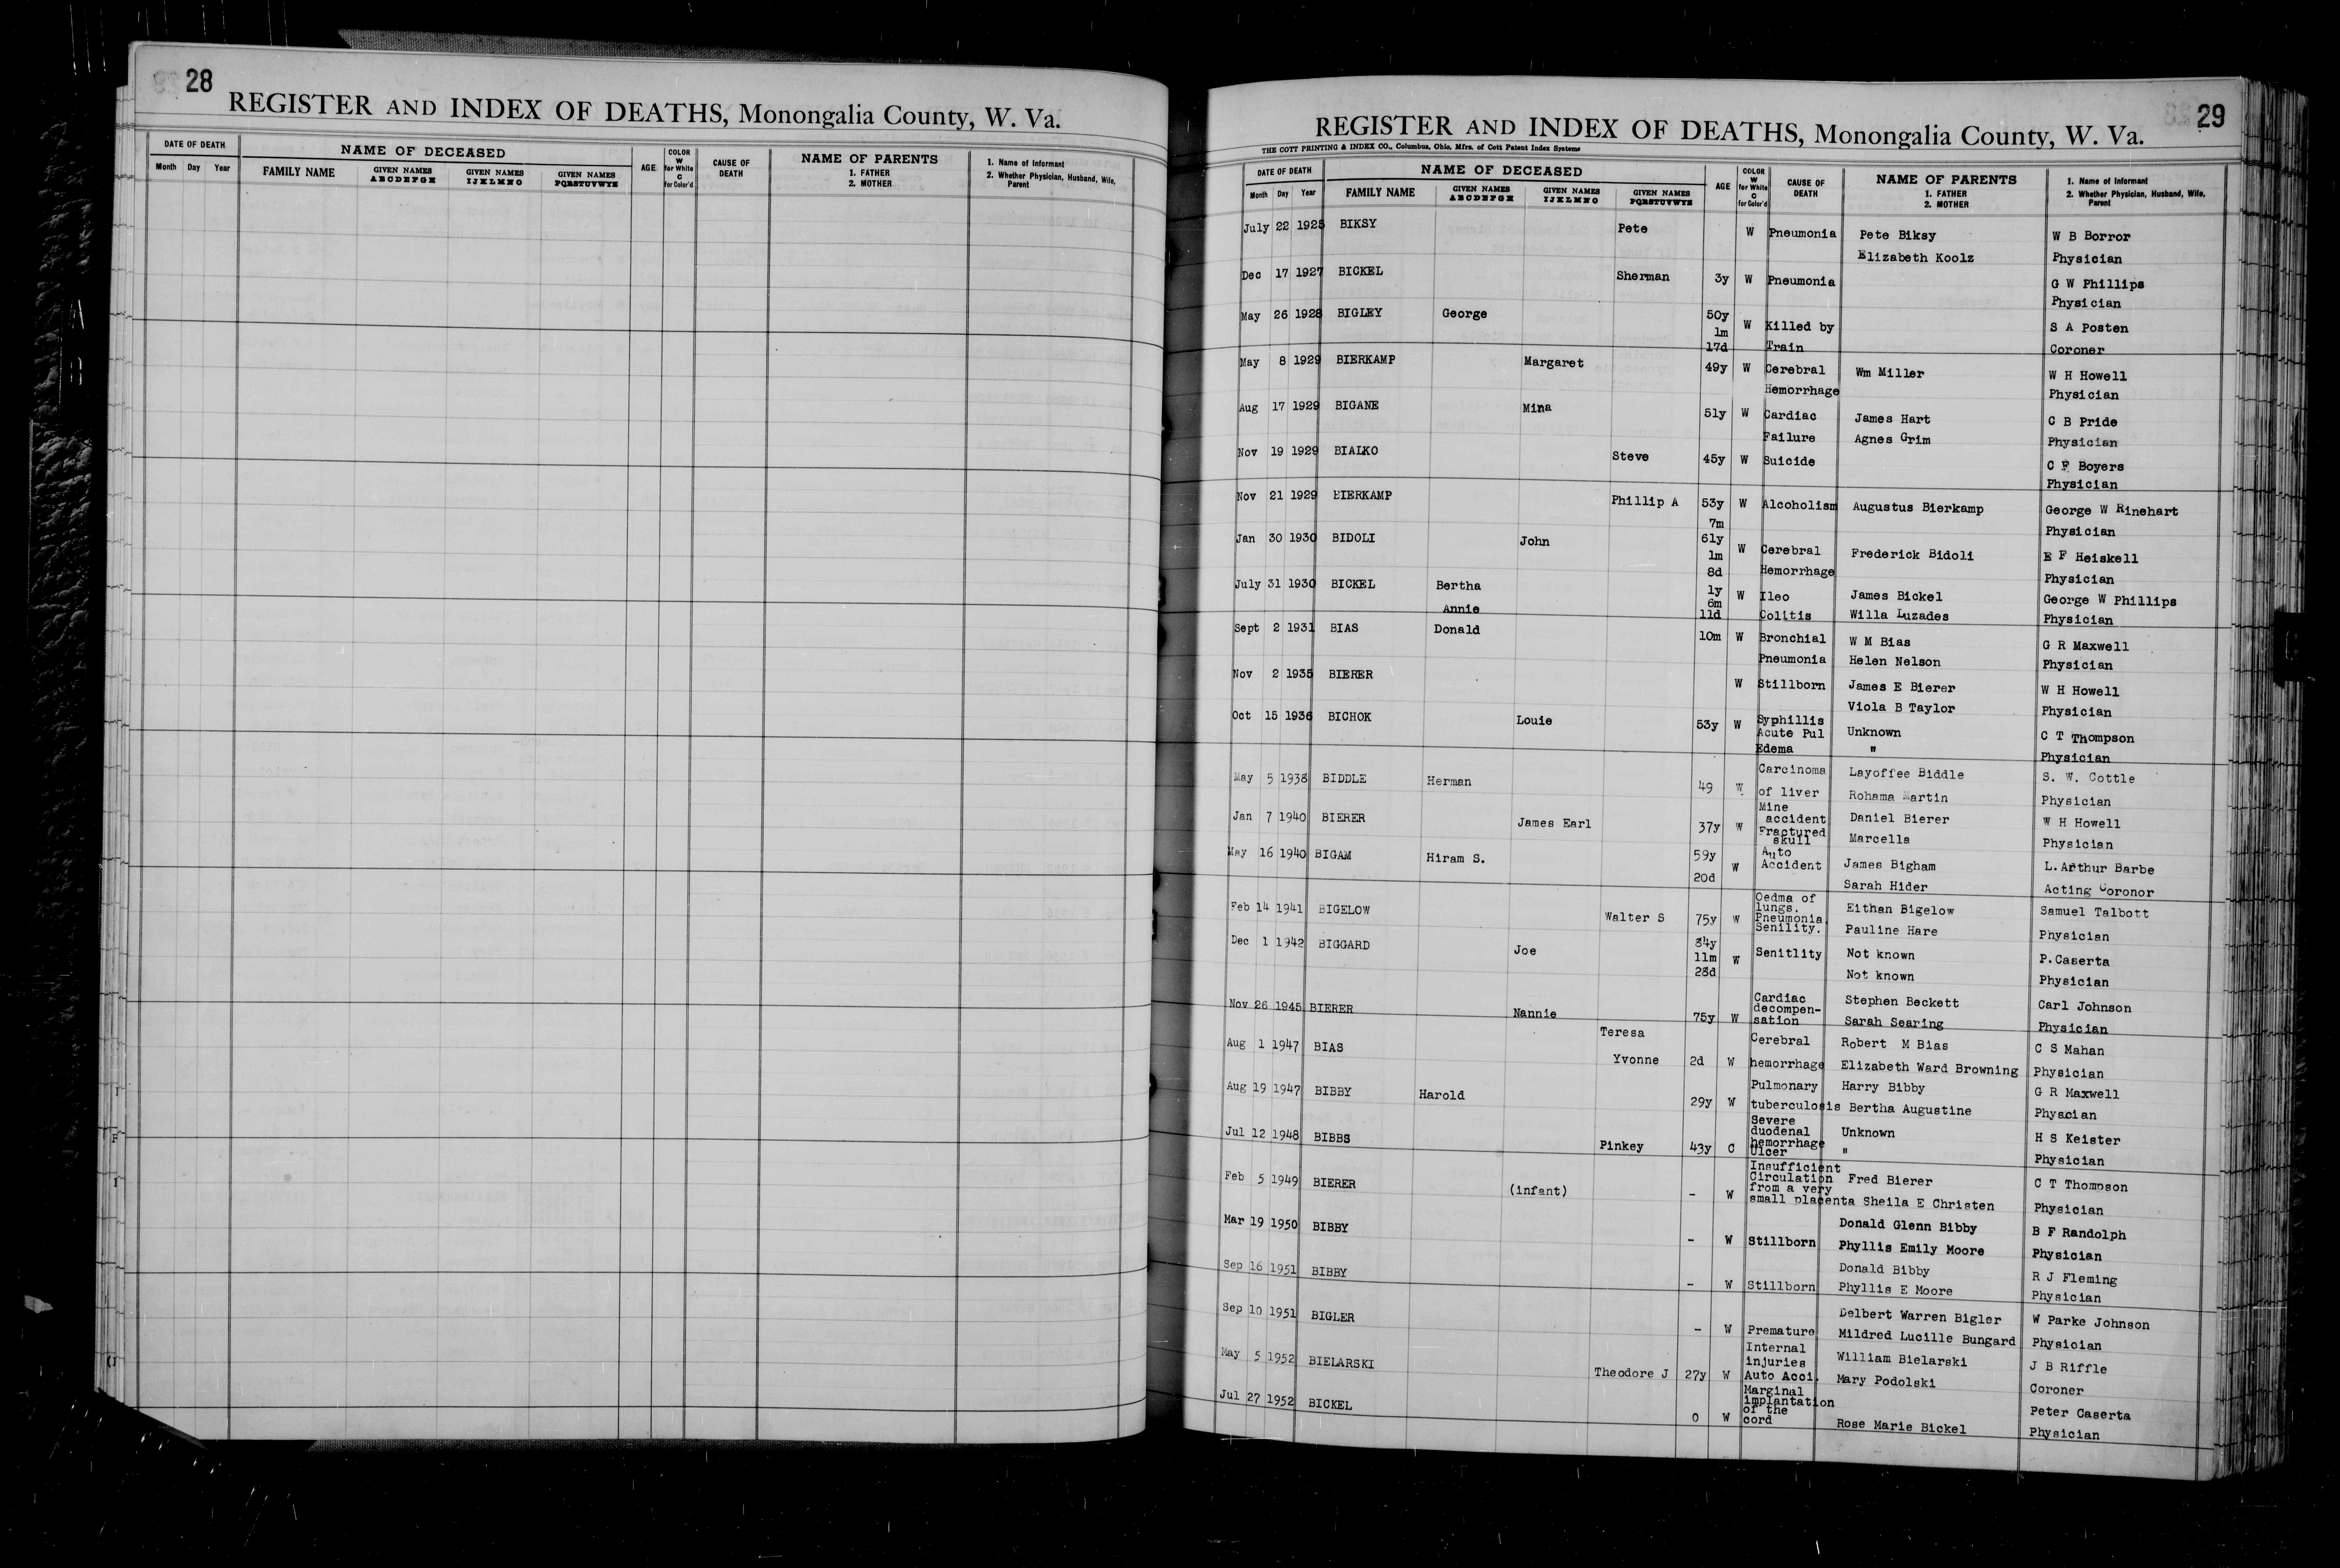 28
REGISTER AND INDEX OF DEATHS, Monongalia County, W. Va.
DATE OF DEATH
Month Day Year
NAME OF DECEASED
FAMILY NAME
GIVEN NAMES
ABCDEFGH
GIVEN NAMES
IJKLMNO
GIVEN NAMES
PQRSTUVWYZ
AGE
COLOR
W
for White
C
for Color'd
CAUSE OF
DEATH
NAME OF PARENTS
1. FATHER
2. MOTHER
1. Name of Informant
2. Whether Physician, Husband, Wife,
Parent
29
REGISTER AND INDEX OF DEATHS, Monongalia County, W. Va.
THE COTT PRINTING & INDEX CO., Columbus, Ohio, Mfrs. of Cott Patent Index Systems
DATE OF DEATH
Month Day Year
NAME OF DECEASED
FAMILY NAME
GIVEN NAMES
ABCDEFGH
GIVEN NAMES
IJKLMNO
GIVEN NAMES
PQRSTUVWYZ
AGE
COLOR
W
for White
C
for Color'd
CAUSE OF
DEATH
NAME OF PARENTS
1. FATHER
2. MOTHER
1. Name of Informant
2. Whether Physician, Husband, Wife,
Parent
July 22 1925 BIKSY Pete W Pneumonia Pete Biksy W B Borror
Elizabeth Koolz Physician
Dec 17 1927 BICKEL Sherman 3y W Pneumonia G W Phillips
Physician
May 26 1928 BIGLEY George 50y W Killed by S A Posten
1m
17d Train Coroner
May 8 1929 BIERKAMP Margaret 49y W Cerebral Wm Miller W H Howell
Hemorrhage Physician
Aug 17 1929 BIGANE Mina 51y W Cardiac James Hart C B Pride
Failure Agnes Grim Physician
Nov 19 1929 BIALKO Steve 45y W Suicide C F Boyers
Physician
Nov 21 1929 BIERKAMP Phillip A 53y W Alcoholism Augustus Bierkamp George W Rinehart
7m Physician
Jan 30 1930 BIDOLI John 61y
1m W Cerebral Frederick Bidoli E F Heiskell
8d Hemorrhage Physician
July 31 1930 BICKEL Bertha 1y
6m W Ileo James Bickel George W Phillips
Annie 11d Colitis Willa Luzades Physician
Sept 2 1931 BIAS Donald 10m W Bronchial W M Bias G R Maxwell
Pneumonia Helen Nelson Physician
Nov 2 1935 BIERER W Stillborn James E Bierer W H Howell
Viola B Taylor Physician
Oct 15 1936 BICHOK Louie 53y W Syphillis
Acute Pul Unknown C T Thompson
Edema " Physician
May 5 1938 BIDDLE Herman 49 W. Carcinoma Layoffee Biddle S. W. Cottle
of liver Rohama Martin Physician
Jan 7 1940 BIERER James Earl 37y W Mine
accident Daniel Bierer W H Howell
Fractured
skull Marcella Physician
May 16 1940 BIGAM Hiram S. 59y W Auto
Accident James Bigham L. Arthur Barbe
20d Sarah Hider Acting Coronor
Feb 14 1941 BIGELOW Walter S 75y W Oedma of
lungs. Eithan Bigelow Samuel Talbott
Pneumonia.
Senility. Pauline Hare Physician
Dec 1 1942 BIGGARD Joe 84y
11m W Senitlity Not known P. Caserta
28d Not known Physician
Nov 26 1945 BIERER Nannie 75y W Cardiac Stephen Beckett Carl Johnson
decompen-
sation Sarah Searing Physician
Aug 1 1947 BIAS Teresa Cerebral Robert M Bias C S Mahan
Yvonne 2d W hemorrhage Elizabeth Ward Browning Physician
Aug 19 1947 BIBBY Harold 29y W Pulmonary Harry Bibby G R Maxwell
tuberculosis Bertha Augustine Physcian
Jul 12 1948 BIBBS Pinkey 43y C Severe
duodenal Unknown H S Keister
hemorrhage
Ulcer " Physician
Feb 5 1949 BIERER (infant) - W Insufficient
Circulation Fred Bierer C T Thompson
from a very
small placenta Sheila E Christen Physician
Mar 19 1950 BIBBY - W Stillborn Donald Glenn Bibby B F Randolph
Phyllis Emily Moore Physician
Sep 16 1951 BIBBY - W Stillborn Donald Bibby R J Fleming
Phyllis E Moore Physician
Sep 10 1951 BIGLER - W Premature Delbert Warren Bigler W Parke Johnson
Mildred Lucille Bungard Physician
May 5 1952 BIELARSKI Theodore J 27y W Internal
injuries William Bielarski J B Riffle
Auto Acci. Mary Podolski Coroner
Jul 27 1952 BICKEL 0 W Marginal
implantation Peter Caserta
of the
cord Rose Marie Bickel Physician